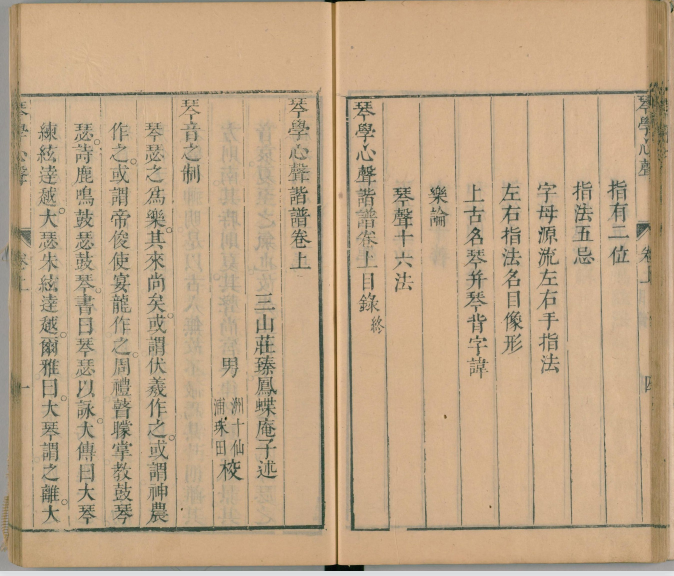 琴學心聲
卷上
四
指有二位
指法五忌
字母源流左右手指法
左右指法名目像形
上古名琴并琴背字諱
樂論
琴聲十六法
琴學心聲諧譜卷上目錄終
琴學心聲諧譜卷上
三山莊臻鳳蝶庵子述
男
洲十仙
浦珠田
校
琴音之制
琴瑟之爲樂其來尚矣或謂伏羲作之或謂神農
作之或謂帝俊使宴龍作之周禮瞽矇掌教鼓琴
瑟詩鹿鳴鼓瑟鼓琴書曰琴瑟以詠大傳曰大琴
練絃達越大瑟朱絃達越爾雅曰大琴謂之離大
琴學心聲
卷上
一